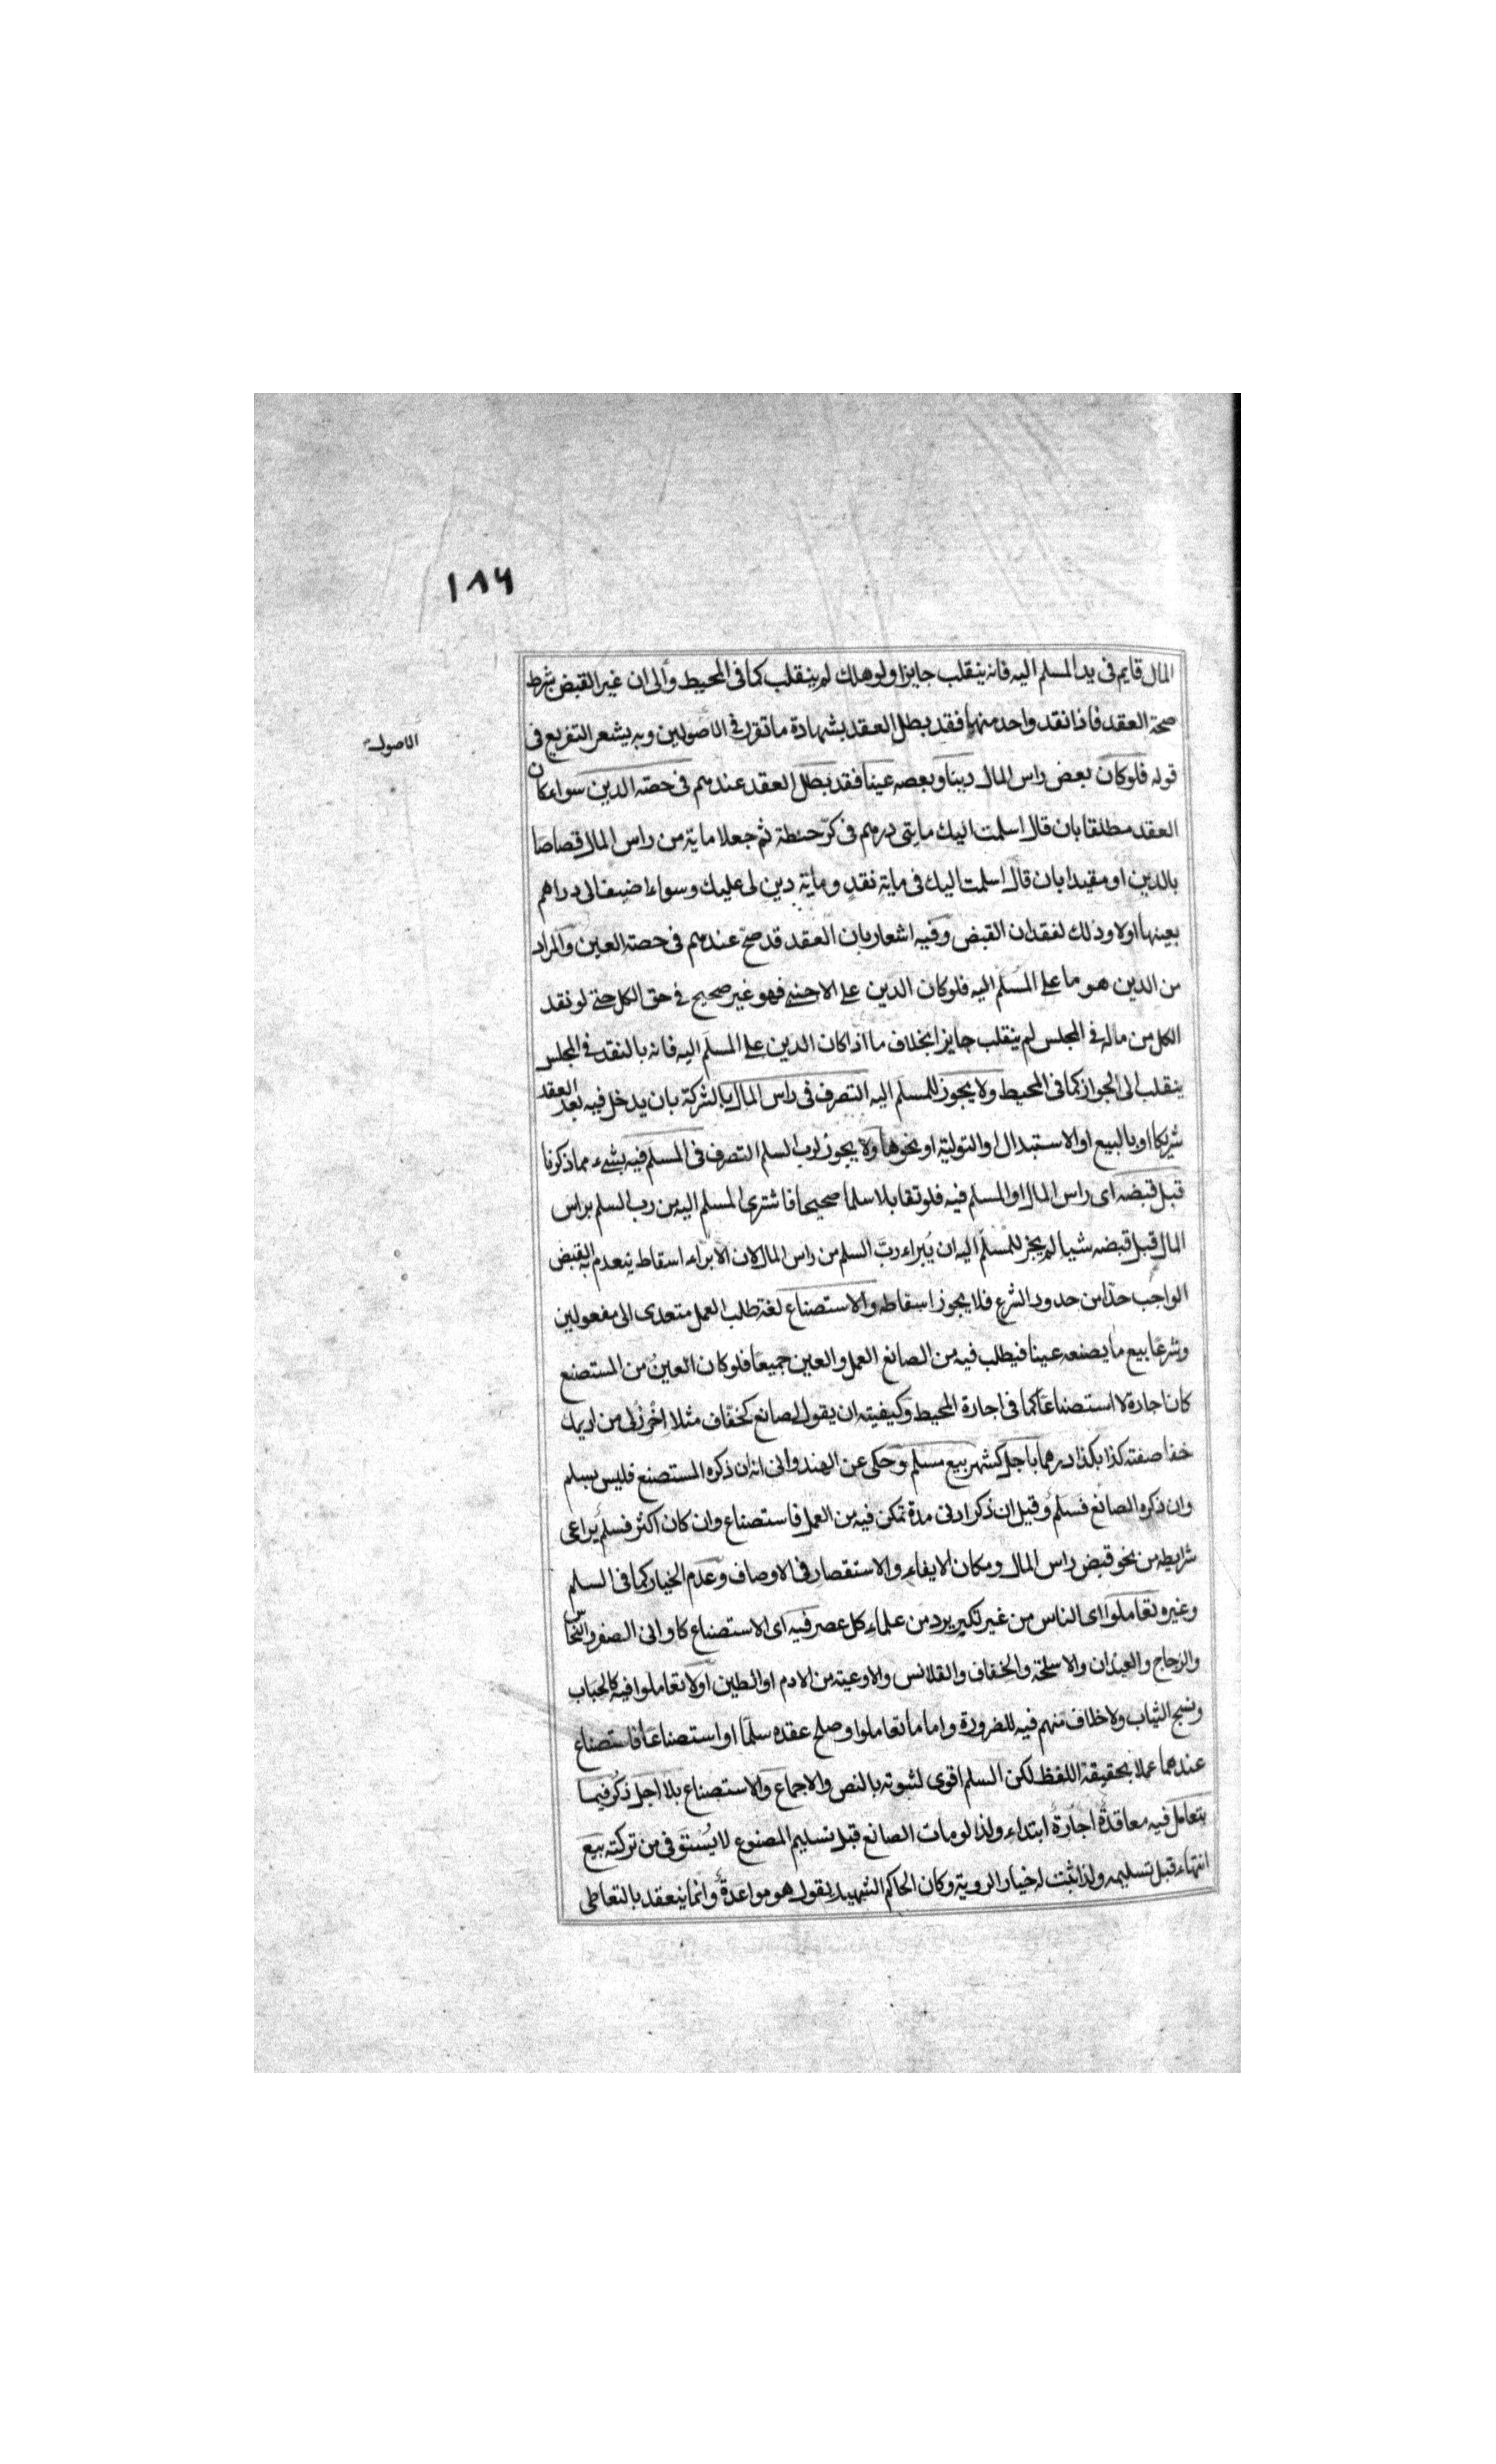 ١٨٦
المال قايم فى يد المسلم اليه فانه ينقلب جايزا ولو هلك لم ينقلب كما فى المحيط والى ان غير القبض شرط
صحة العقد فاذا نقد واحد منها فقد بطل العقد بشهادة ما تقرر فى الاصولين وبه يشعر التفريع فى
الاصولية
قوله فلو كان بعض راس المال دينا وبعضه عينا فقد بطل العقد عندهم فى حصة الدين سواء كان
العقد مطلقا بان قال اسلمت اليك مايتى درهم فى كر حنطة ثم جعلا ماية من راس المال قصاصا
بالدين او مقيدا بان قال اسلمت اليك فى ماية نقد وماية دين لى عليك وسواء اضيف الى دراهم
بعينها اولا وذلك لفقدان القبض وفيه اشعار بان العقد قد صح عندهم فى حصة العين والمراد
من الدين هو ما على المسلم اليه فلو كان الدين على الاجنبى فهو غير صحيح فى حق الكل حتى لو نقد
الكل من ماله فى المجلس لم ينقلب جايزا بخلاف ما اذا كان الدين على المسلم اليه فانه بالنقد فى المجلس
ينقلب الى الجواز كما فى المحيط ولا يجوز للمسلم اليه التصرف فى راس المال بالشركة بان يدخل فيه بعد العقد
شريكا او بالبيع او الاستبدال او التولية او نحوها ولا يجوز لرب السلم التصرف فى المسلم فيه بشىء مما ذكرنا
قبل قبضه اى راس المال او المسلم فيه فلو تقايلا سلما صحيحا فاشترى المسلم اليه من رب السلم براس
المال قبل قبضه شيا لم يجز للمسلم اليه ان يبراء رب السلم من راس المال لان الابراء اسقاط ينعدم به القبض
الواجب حذا من حدود الشرع فلا يجوز اسقاطه والاستصناع لغة طلب العمل متعدى الى مفعولين
وشرعا بيع ما يصنعه عينا فيطلب فيه من الصانع العمل والعين جميعا فلو كان العين من المستصنع
كان اجارة لا استصناعا كما فى اجارة المحيط وكيفيته ان يقول لصانع كخفاف مثلا اخرز لى من اديمك
خفا صفته كذا بكذا درهما باجل كشهر بيع مسلم وحكى عن الهندوانى انه ان ذكره المستصنع فليس بسلم
وان ذكره الصانع فسلم وقيل ان ذكر ادنى مدة تمكن فيه من العمل فاستصناع وان كان اكثر فسلم يراعى
شرايطه من نحو قبض راس المال ومكان الايفاء والاستقصار فى الاوصاف وعدم الخيار كما فى السلم
وغيره تعاملوا اى الناس من غير نكير يرد من علماء كل عصر فيه اى الاستصناع كاوانى الصفر والنحاس
والزجاج والعيدان والاسلحة والخفاف والقلانس والاوعية من الادم او الطين اولا تعاملوا فيه كالحباب
ونسج الثياب ولا خلاف منهم فيه للضرورة واما ما تعاملوا وصلح عقده سلما او استصناعا فاستصناع
عندهما عملا بحقيقة اللفظ لكن السلم اقوى لثبوته بالنص والاجماع والاستصناع بلا اجل ذكر فيما
يتعامل فيه معاقدة اجارة ابتداء ولذا لو مات الصانع قبل تسليم المصنوع لا يستوفى من تركته بيع
انتهاء قبل تسليمه ولذا ثبت له خيار الروية وكان الحاكم الشهيد يقول هو مواعدة وانما ينعقد بالتعاطى